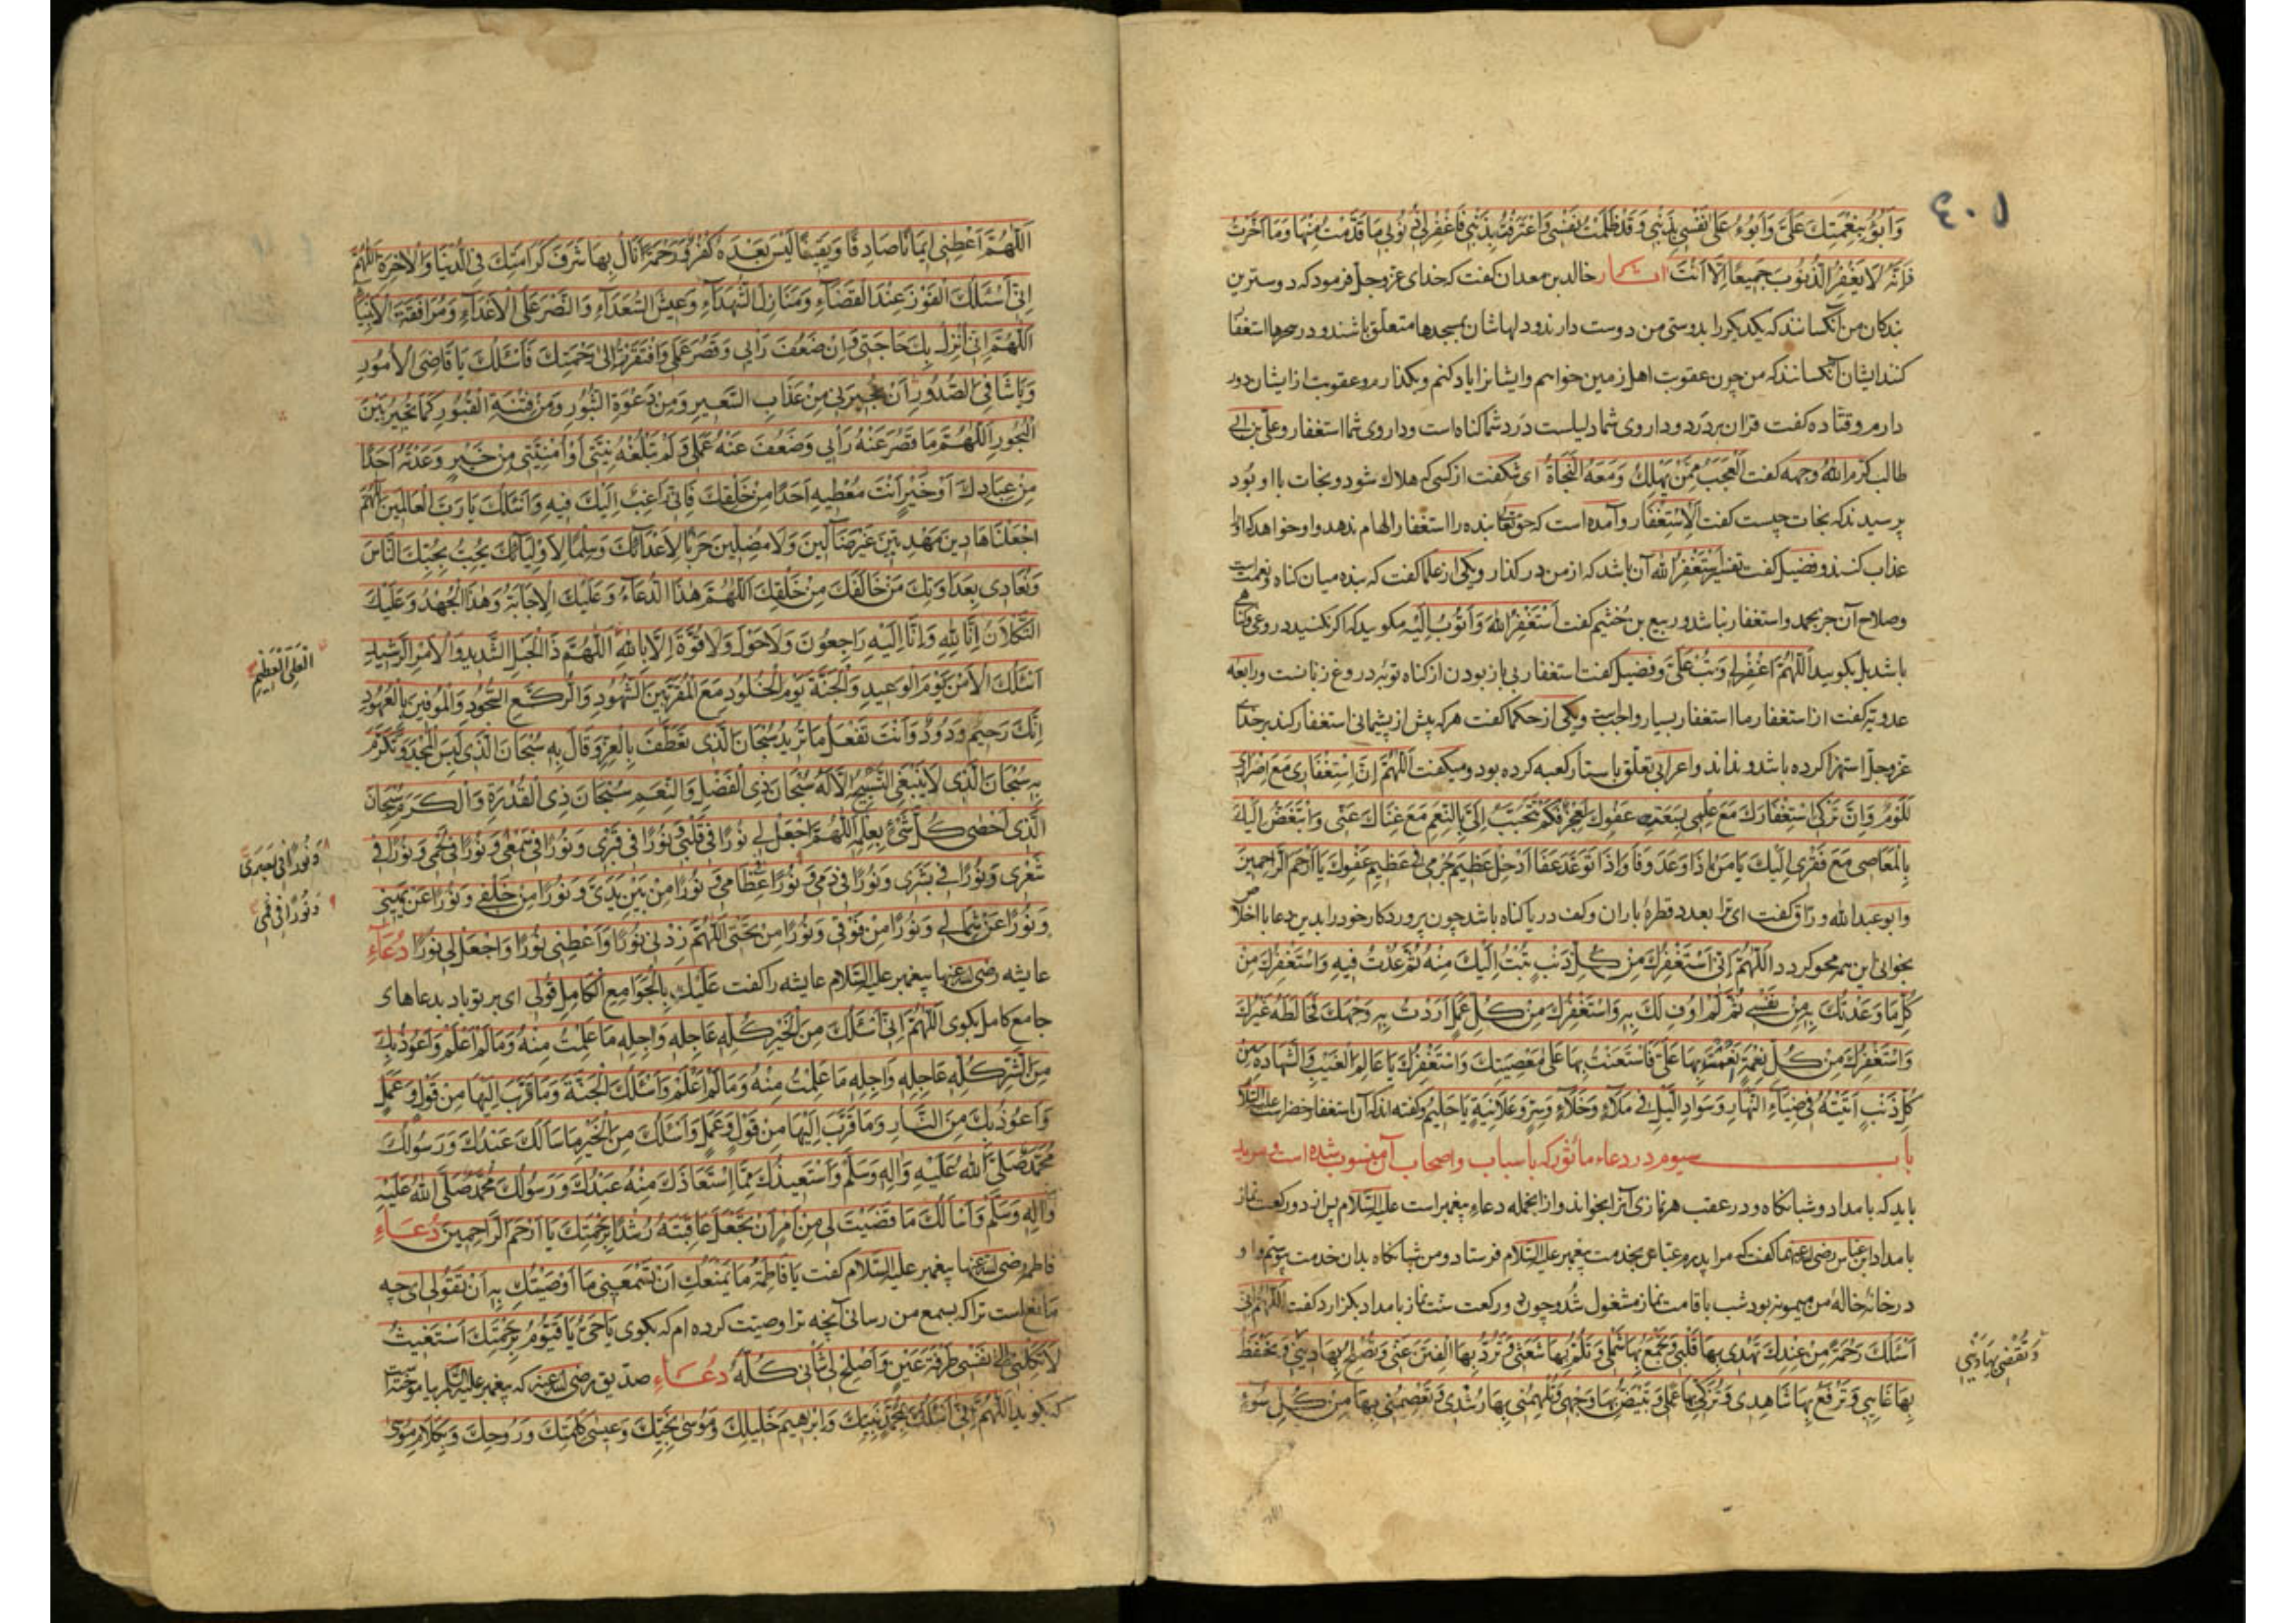 ٤٠٥
وَاَبُوءُ بِنِعْمَتِكَ عَلَىَّ وَاَبُوءُ عَلٰى نَفْسِى بِذَنْبِى وَقَدْ ظَلَمْتُ نَفْسِى وَاعْتَرَفْتُ بِذَنْبِى فَاغْفِرْلِى ذُنُوبِى مَا قَدَّمْتُ مِنْهَا وَمَا اَخَّرْتُ
فَاِنَّهُ لَا يَغْفِرُ الذُّنُوبَ جَمِيعًا اِلَّا اَنْتَ خالدبن معدان کفت که خدای عزوجل فرمود که دوسترین
بندکان من آنکسانند که یکدیکر را بدوستی من دوست دارند و دلهاشان بمسجدها متعلق باشند و در سحرها استغفار
کنند ایشان آنکسانند که من چون عقوبت اهل زمین خواهم وایشانرا یاد کنم و بکذارم و عقوبت از ایشان دور
دارم و قتاده کفت قران بر درد و داروی شما دلیلست درد شما کناه است و داروی شما استغفار و علی بن ابی
طالب کرم الله وجهه کفت اَلْعَجَبُ مِمَّنْ يَهْلِكُ وَمَعَهُ النَّجَاةُ ای شکفت از کسی که هلاك شود و نجات با او بود
پرسیدند که نجات چیست کفت اَلْاِسْتِغْفَار و آمده است که حق تعالی بنده را استغفار الهام ندهد و او خواهد که او را
عذاب کند و فضیل کفت تفسیر اَسْتَغْفِرُ اللّٰهَ آن باشد که از من در کذار و یکی از علما کفت که بنده میان کناه و نعمت است
وصلاح آن جز بحمد و استغفار نباشد و ربیع بن خثیم کفت اَسْتَغْفِرُ اللّٰهَ وَاَتُوبُ اِلَيْهِ مکویید که اکر نکنید دروغی و کناهی
باشد بل بکویید اَللّٰهُمَّ اغْفِرْلِى وَتُبْ عَلَىَّ و فضیل کفت استغفار بی باز بودن از کناه توبۀ دروغ زنانست و رابعه
عدویه کفت از استغفار ما استغفار بسیار واجبست و یکی از حکما کفت هر که پیش از پشیمانی استغفار کند بر خدای
عزوجل استهزا کرده باشد و نداند و اعرابی تعلق باستار کعبه کرده بود و میکفت اَللّٰهُمَّ اِنَّ اسْتِغْفَارِى مَعَ اِصْرَارِى
لَلُؤْمٌ وَاِنَّ تَرْكِى اسْتِغْفَارَكَ مَعَ عِلْمِى بِسَعَةِ عَفْوِكَ لَعَجْزٌ فَكَمْ تَتَحَبَّبُ اِلَىَّ بِالنِّعَمِ مَعَ غِنَاكَ عَنِّى وَاَتَبَغَّضُ اِلَيْكَ
بِالْمَعَاصِى مَعَ فَقْرِى اِلَيْكَ يَا مَنْ اِذَا وَعَدَ وَفَا وَاِذَا تَوَعَّدَ عَفَا اَدْخِلْ عَظِيمَ جُرْمِى فِى عَظِيمِ عَفْوِكَ يَا اَرْحَمَ الرَّاحِمِينَ
وابو عبدالله وراق کفت ای ترا بعدد قطرۀ باران و کف دریا کناه باشد چون پروردکار خود را بدین دعا با اخلاص
بخوانی این همه محو کردد اَللّٰهُمَّ اِنِّى اَسْتَغْفِرُكَ مِنْ كُلِّ ذَنْبٍ تُبْتُ اِلَيْكَ مِنْهُ ثُمَّ عُدْتُ فِيهِ وَاَسْتَغْفِرُكَ مِنْ
كُلِّ مَا وَعَدْتُكَ بِهِ مِنْ نَفْسِى ثُمَّ لَمْ اُوفِ لَكَ بِهِ وَاَسْتَغْفِرُكَ مِنْ كُلِّ عَمَلٍ اَرَدْتُ بِهِ وَجْهَكَ فَخَالَطَهُ غَيْرُكَ
وَاَسْتَغْفِرُكَ مِنْ كُلِّ نِعْمَةٍ اَنْعَمْتَ بِهَا عَلَىَّ فَاسْتَعَنْتُ بِهَا عَلٰى مَعْصِيَتِكَ وَاَسْتَغْفِرُكَ يَا عَالِمَ الْغَيْبِ وَالشَّهَادَةِ مِنْ
كُلِّ ذَنْبٍ اَتَيْتُهُ فِى ضِيَاءِ النَّهَارِ وَسَوَادِ اللَّيْلِ فِى مَلَاءٍ وَخَلَاءٍ وَسِرٍّ وَعَلَانِيَةٍ يَا حَلِيمُ و کفته اند که آن استغفار خضر است علیه السلام
باب سیوم در دعاء ماثور که باسباب و اصحاب آن منسوب شده است و مرید
باید که بامداد و شبانکاه و در عقب هر نمازی آنرا بخواند و از انجمله دعاء پیغمبر است علیه السلام پس از دو رکعت نماز
بامداد ابن عباس رضی الله عنهما کفت که مرا پدرم عباس بخدمت پیغمبر علیه السلام فرستاد و من شبانکاه بدان خدمت پیوستم و او
در خانۀ خالۀ من میمونه بود شب باقامت نماز مشغول شد و چون دو رکعت سنت نماز بامداد بکزارد کفت اَللّٰهُمَّ اِنِّى
اَسْئَلُكَ رَحْمَةً مِنْ عِنْدِكَ تَهْدِى بِهَا قَلْبِى وَتَجْمَعُ بِهَا شَمْلِى وَتَلُمُّ بِهَا شَعَثِى وَتَرُدُّ بِهَا الْفِتَنَ عَنِّى وَتُصْلِحُ بِهَا دِينِى وَتَحْفَظُ
وَتَقْضِى بِهَا دَيْنِى
بِهَا غَايِبِى وَتَرْفَعُ بِهَا شَاهِدِى وَتُزَكِّى بِهَا عَمَلِى وَتُبَيِّضُ بِهَا وَجْهِى وَتُلْهِمُنِى بِهَا رُشْدِى وَتَعْصِمُنِى بِهَا مِنْ كُلِّ سُوءٍ
اَللّٰهُمَّ اَعْطِنِى اِيمَانًا صَادِقًا وَيَقِينًا لَيْسَ بَعْدَهُ كُفْرٌ وَرَحْمَةً اَنَالُ بِهَا شَرَفَ كَرَامَتِكَ فِى الدُّنْيَا وَالْاٰخِرَةِ اَللّٰهُمَّ
اِنِّى اَسْئَلُكَ الْفَوْزَ عِنْدَ الْقَضَاءِ وَمَنَازِلَ الشُّهَدَاءِ وَعَيْشَ السُّعَدَاءِ وَالنَّصْرَ عَلَى الْاَعْدَاءِ وَمُرَافَقَةَ الْاَنْبِيَاءِ
اَللّٰهُمَّ اِنِّى اُنْزِلُ بِكَ حَاجَتِى وَاِنْ ضَعُفَ رَاْيِى وَقَصُرَ عَمَلِى وَافْتَقَرْتُ اِلٰى رَحْمَتِكَ فَاَسْئَلُكَ يَا قَاضِىَ الْاُمُورِ
وَيَا شَافِىَ الصُّدُورِ اَنْ تُجِيرَنِى مِنْ عَذَابِ السَّعِيرِ وَمِنْ دَعْوَةِ الثُّبُورِ وَمِنْ فِتْنَةِ الْقُبُورِ كَمَا تُجِيرُ بَيْنَ
الْبُحُورِ اَللّٰهُمَّ مَا قَصُرَ عَنْهُ رَاْيِى وَضَعُفَ عَنْهُ عَمَلِى وَلَمْ تَبْلُغْهُ نِيَّتِى اَوْ اُمْنِيَّتِى مِنْ خَيْرٍ وَعَدْتَهُ اَحَدًا
مِنْ عِبَادِكَ اَوْ خَيْرٍ اَنْتَ مُعْطِيهِ اَحَدًا مِنْ خَلْقِكَ فَاِنِّى اَرْغَبُ اِلَيْكَ فِيهِ وَاَسْئَلُكَ يَا رَبَّ الْعَالَمِينَ اَللّٰهُمَّ
اجْعَلْنَا هَادِينَ مَهْدِيِّينَ غَيْرَ ضَآلِّينَ وَلَا مُضِلِّينَ حَرْبًا لِاَعْدَائِكَ وَسِلْمًا لِاَوْلِيَائِكَ نُحِبُّ بِحُبِّكَ النَّاسَ
وَنُعَادِى بِعَدَاوَتِكَ مَنْ خَالَفَكَ مِنْ خَلْقِكَ اَللّٰهُمَّ هٰذَا الدُّعَاءُ وَعَلَيْكَ الْاِجَابَةُ وَهٰذَا الْجُهْدُ وَعَلَيْكَ
التُّكْلَانُ اِنَّا لِلّٰهِ وَاِنَّا اِلَيْهِ رَاجِعُونَ وَلَا حَوْلَ وَلَا قُوَّةَ اِلَّا بِاللّٰهِ اَللّٰهُمَّ ذَا الْحَبْلِ الشَّدِيدِ وَالْاَمْرِ الرَّشِيدِ
الْعَلِىِّ الْعَظِيمِ
اَسْئَلُكَ الْاَمْنَ يَوْمَ الْوَعِيدِ وَالْجَنَّةَ يَوْمَ الْخُلُودِ مَعَ الْمُقَرَّبِينَ الشُّهُودِ وَالرُّكَّعِ السُّجُودِ وَالْمُوفِينَ بِالْعُهُودِ
اِنَّكَ رَحِيمٌ وَدُودٌ وَاَنْتَ تَفْعَلُ مَا تُرِيدُ سُبْحَانَ الَّذِى تَعَطَّفَ بِالْعِزِّ وَقَالَ بِهِ سُبْحَانَ الَّذِى لَبِسَ الْمَجْدَ وَتَكَرَّمَ
بِهِ سُبْحَانَ الَّذِى لَا يَنْبَغِى التَّسْبِيحُ اِلَّا لَهُ سُبْحَانَ ذِى الْفَضْلِ وَالنِّعَمِ سُبْحَانَ ذِى الْقُدْرَةِ وَالْكَرَمِ سُبْحَانَ
الَّذِى اَحْصٰى كُلَّ شَىْءٍ بِعِلْمِهِ اَللّٰهُمَّ اجْعَلْ لِى نُورًا فِى قَلْبِى وَنُورًا فِى قَبْرِى وَنُورًا فِى سَمْعِى وَنُورًا فِى لَحْمِى وَنُورًا فِى
وَنُورًا فِى بَصَرِى
شَعْرِى وَنُورًا فِى بَشَرِى وَنُورًا فِى دَمِى وَنُورًا فِى عِظَامِى وَنُورًا مِنْ بَيْنِ يَدَىَّ وَنُورًا مِنْ خَلْفِى وَنُورًا عَنْ يَمِينِى
وَنُورًا فِى فَمِى
وَنُورًا عَنْ شِمَالِى وَنُورًا مِنْ فَوْقِى وَنُورًا مِنْ تَحْتِى اَللّٰهُمَّ زِدْنِى نُورًا وَاَعْطِنِى نُورًا وَاجْعَلْ لِى نُورًا دُعَاءِ
عایشه رضی الله عنها پیغمبر علیه السلام عایشه را کفت عَلَيْكِ بِالْجَوَامِعِ الْكَامِلِ قُولِى ای بر تو باد بدعاهای
جامع کامل بکوی اَللّٰهُمَّ اِنِّى اَسْئَلُكَ مِنَ الْخَيْرِ كُلِّهِ عَاجِلِهِ وَاٰجِلِهِ مَا عَلِمْتُ مِنْهُ وَمَا لَمْ اَعْلَمْ وَاَعُوذُ بِكَ
مِنَ الشَّرِّ كُلِّهِ عَاجِلِهِ وَاٰجِلِهِ مَا عَلِمْتُ مِنْهُ وَمَا لَمْ اَعْلَمْ وَاَسْئَلُكَ الْجَنَّةَ وَمَا قَرَّبَ اِلَيْهَا مِنْ قَوْلٍ وَعَمَلٍ
وَاَعُوذُ بِكَ مِنَ النَّارِ وَمَا قَرَّبَ اِلَيْهَا مِنْ قَوْلٍ وَعَمَلٍ وَاَسْئَلُكَ مِنَ الْخَيْرِ مَا سَاَلَكَ عَبْدُكَ وَرَسُولُكَ
مُحَمَّدٌ صَلَّى اللّٰهُ عَلَيْهِ وَاٰلِهِ وَسَلَّمَ وَاَسْتَعِيذُكَ مِمَّا اسْتَعَاذَكَ مِنْهُ عَبْدُكَ وَرَسُولُكَ مُحَمَّدٌ صَلَّى اللّٰهُ عَلَيْهِ
وَاٰلِهِ وَسَلَّمَ وَاَسْاَلُكَ مَا قَضَيْتَ لِى مِنْ اَمْرٍ اَنْ تَجْعَلَ عَاقِبَتَهُ رُشْدًا بِرَحْمَتِكَ يَا اَرْحَمَ الرَّاحِمِينَ دُعَاءِ
فاطمه رضی الله عنها پیغمبر علیه السلام کفت يَا فَاطِمَةُ مَا يَمْنَعُكِ اَنْ تَسْمَعِينِى مَا اَوْصَيْتُكِ بِهِ اَنْ تَقُولِى ای چه
مانعست ترا که بسمع من رسانی آنچه ترا وصیت کرده ام که بکوی يَا حَىُّ يَا قَيُّومُ بِرَحْمَتِكَ اَسْتَغِيثُ
لَا تَكِلْنِى اِلٰى نَفْسِى طَرْفَةَ عَيْنٍ وَاَصْلِحْ لِى شَاْنِى كُلَّهُ دُعَاءِ صدیق رضی الله عنه که پیغمبر علیه السلام بیاموخته است
که بکوید اَللّٰهُمَّ اِنِّى اَسْئَلُكَ بِمُحَمَّدٍ نَبِيِّكَ وَاِبْرٰهِيمَ خَلِيلِكَ وَمُوسٰى نَجِيِّكَ وَعِيسٰى كَلِمَتِكَ وَرُوحِكَ وَبِكَلَامِ مُوسٰى